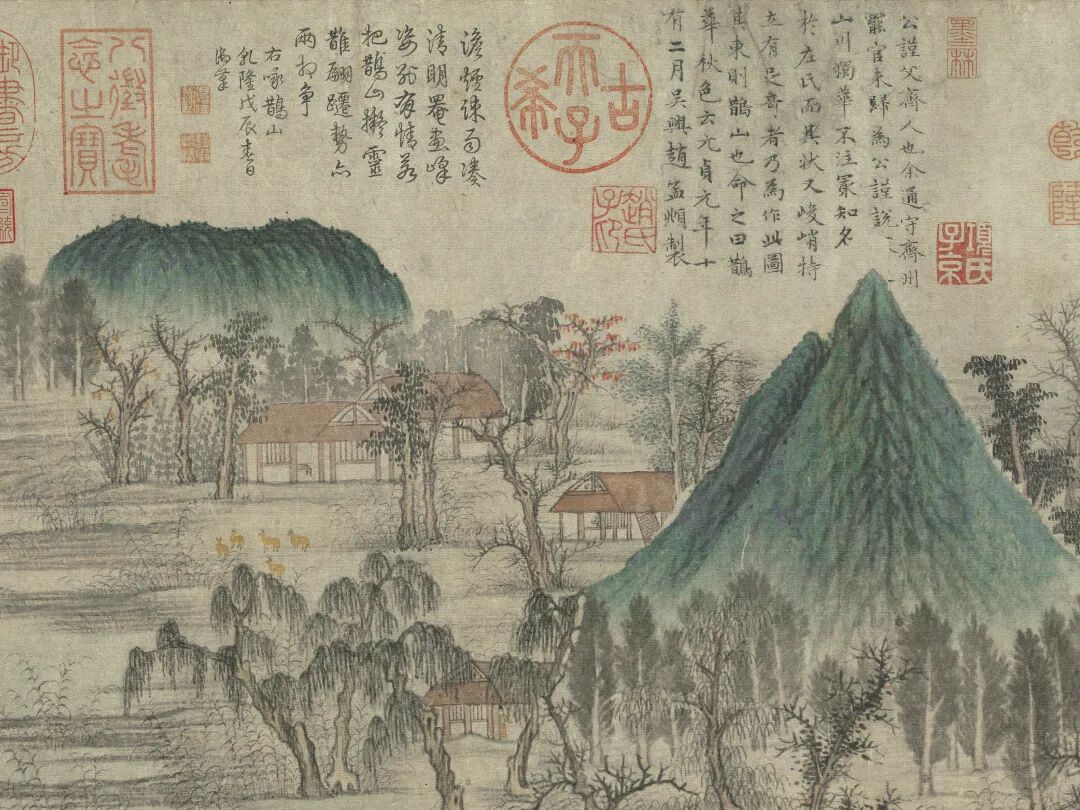 墨林
公謹父齊人也余通守齊州
罷官来歸為公謹說
山川獨華不注冣知名
於左氏而其狀又峻峭特
立有足奇者乃為作此圖
其東則鵲山也命之曰鵲
華秋色云元貞元年十
有二月吳興趙孟頫製
項氏子京
趙氏子印
古希天子
澹煙疎雨湊
清明罨畫峰
姿別有情若
把鵲山擬靈
鵲翩躚勢亦
兩相爭
右咏鵲山
乾隆戊辰春日
御筆
八徵耄念之寶